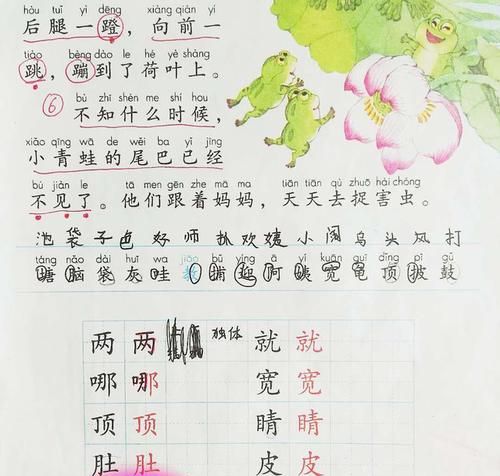 hòu tuǐ yì dēng xiàng qián yí
后腿一蹬，向前一
tiào bèng dào le hé yè shàng
跳，蹦到了荷叶上。
bù zhī shén me shí hou
⑥ 不知什么时候，
xiǎo qīng wā de wěi ba yǐ jīng
小青蛙的尾巴已经
bú jiàn le tā men gēn zhe mā ma tiān tiān qù zhuō hài chóng
不见了。他们跟着妈妈，天天去捉害虫。
池 袋 子 色 好 师 趴 欢 姨 小 阔 乌 头 风 打
táng nǎo dài huī wa jiāo bǔ yíng ā yí kuān guī dǐng pī gǔ
塘 脑 袋 灰 哇 捕 迎 阿 姨 宽 龟 顶 披 鼓
两 两 独体 就 就
哪 哪 宽 宽
顶 顶 睛 睛
肚 肚 皮 皮